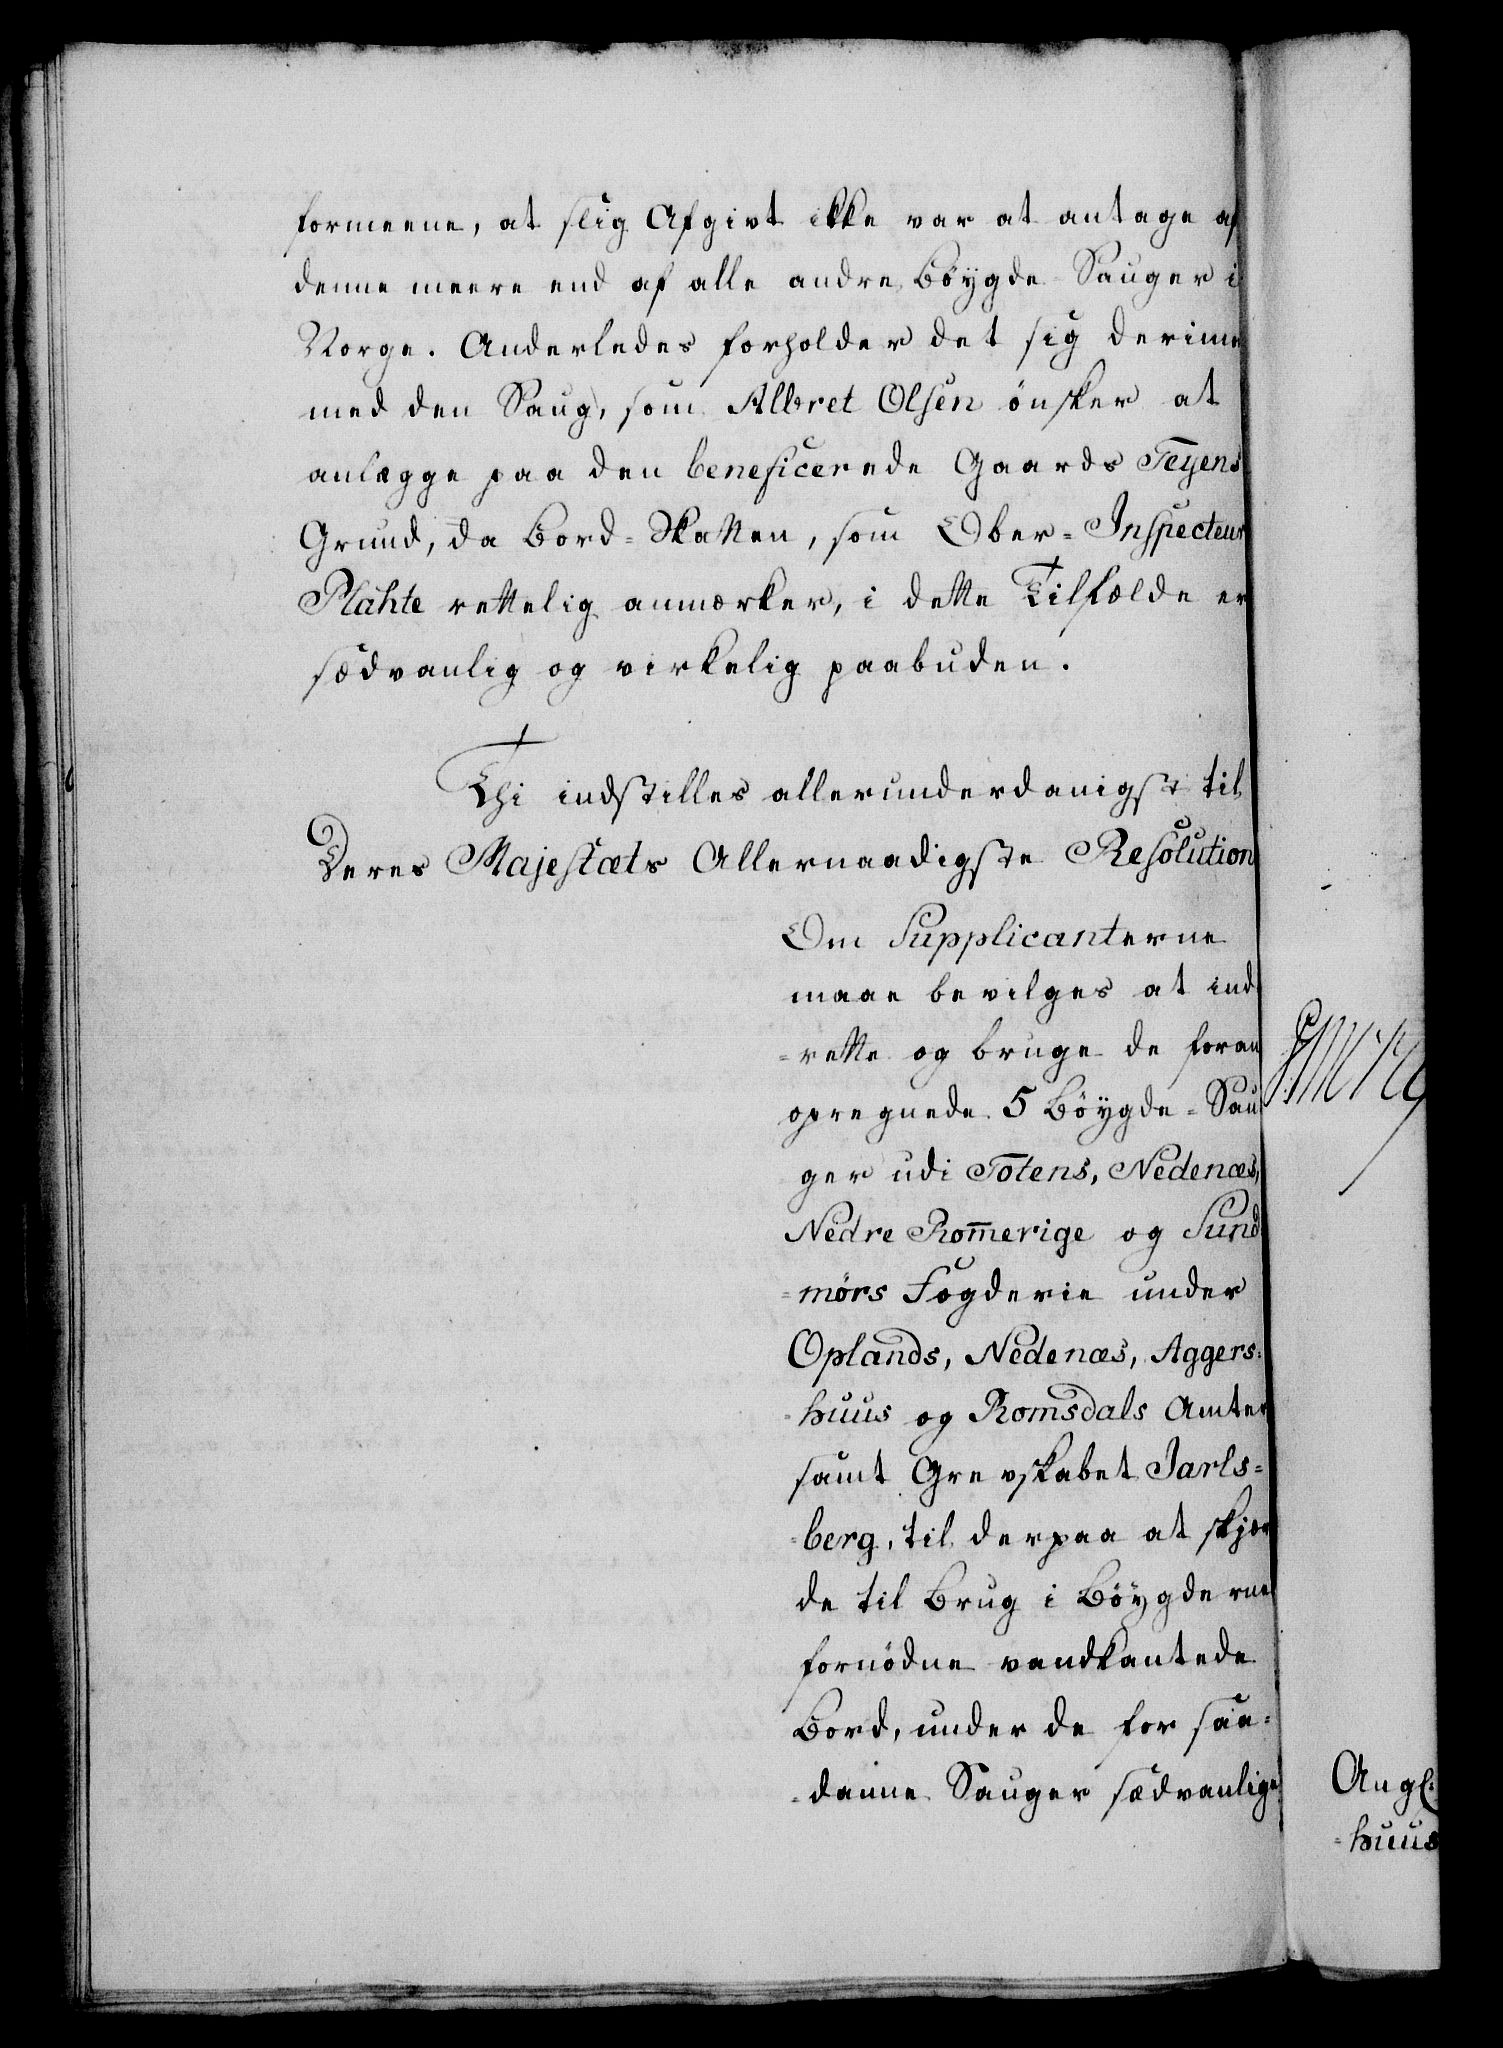 formeene, at slig Afgivt ikke var at antage af
denne meere end af alle andre Böygde-Sauger i
Norge. Anderledes forholder det sig derimo
med den Saug, som Albret Olsen ønsker at
anlægge paa den beneficerede Gaards Teyens
Grund, da Bord-Skatten, som Ober-Inspecteur
Plahte rettelig anmærker, i dette Tilfælde er
sædvanlig og virkelig paabuden.
Thi indstilles allerunderdanigst til
Deres Majestæts Allernaadigste Resolution
Om Supplicanterne
maae bevilges at ind
-rette og bruge de foran
opregnede 5 Böygde-Sau
ger udi Totens, Nedenæs,
Nedre Rom̅erige og Sund
-mørs Fogderie under
Oplands, Nedenæs, Aggers-
-huus og Romsdals Amter
samt Grevskabet Jarls-
-berg, til derpaa at skjæ
de til Brug i Böygderne
fornödne vandkantede
Bord, under de for saa-
-danne Sauger sædvanlige
Angl:
-huus